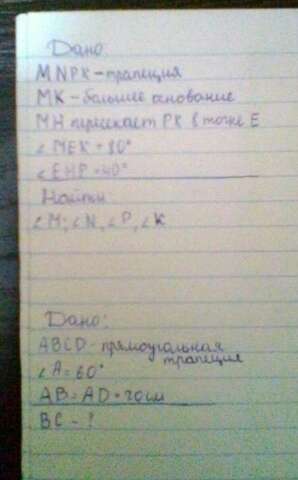 Дано:
MNPK - трапеция
MK - большее основание
MH пересекает PK в точке E
∠MEK = 80°
∠EHP = 40°
Найти
∠M; ∠N, ∠P, ∠K
Дано:
ABCD - прямоугольная
трапеция
∠A = 60°
AB = AD = 20 см
BC - ?